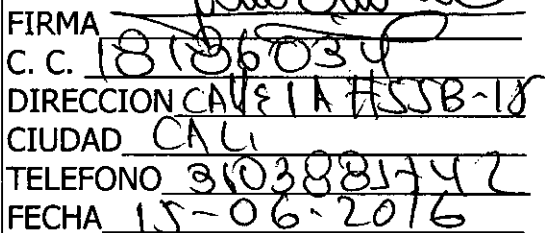 FIRMA
C. C. 18186034
DIRECCION CALLE 1A #55B-18
CIUDAD CALI
TELEFONO 3103885742
FECHA 15-06-2016